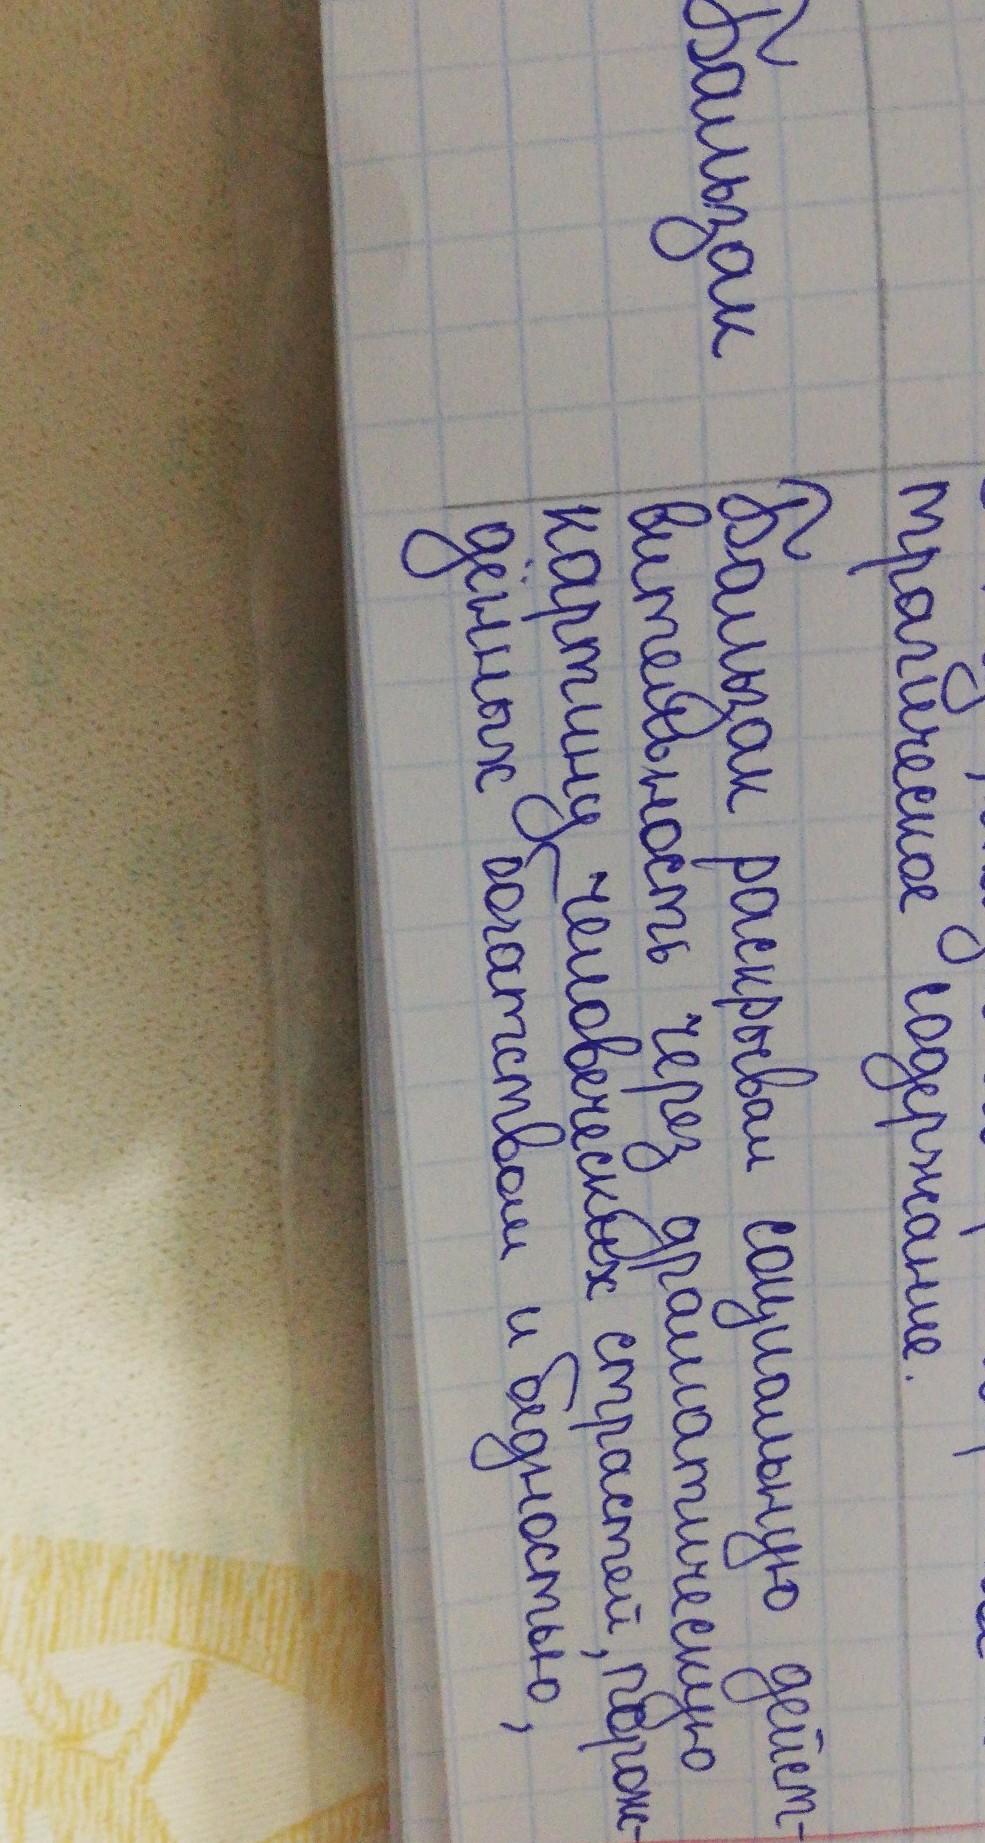 трагическое содержание.
Бальзак
Бальзак раскрывал социальную дейст-
вительность через драматическую
картину человеческих страстей, порож-
дённых богатством и бедностью,